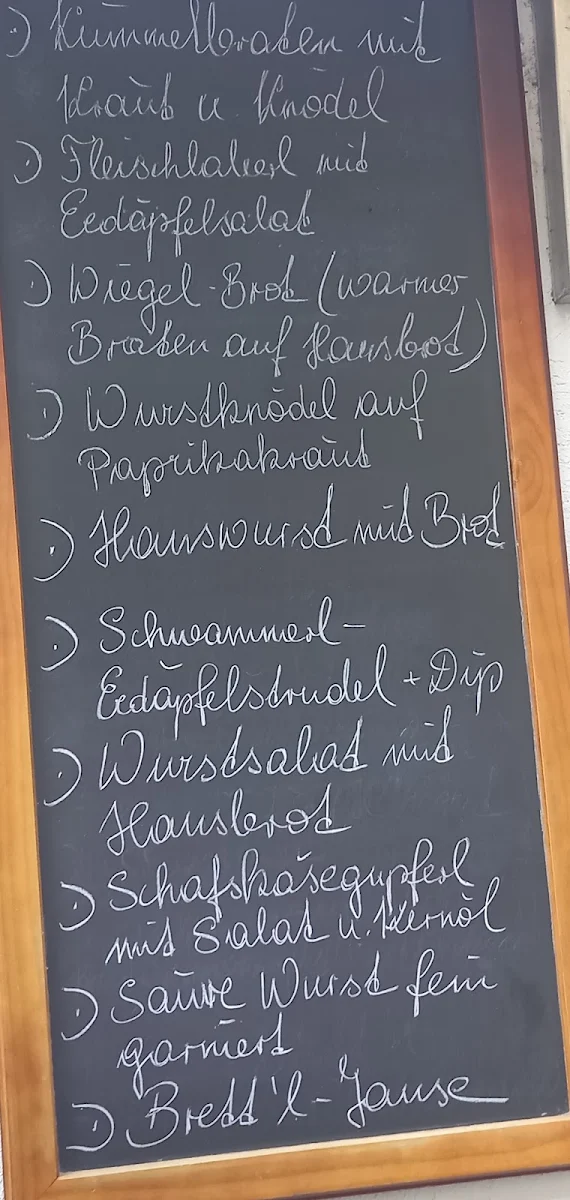 ·) Kümmelbraten mit
Kraut u. Knödel
·) Fleischlaberl mit
Erdäpfelsalat
·) Wiegel-Brot (warmer
Braten auf Hausbrot)
·) Wurstknödel auf
Paprikakraut
·) Hauswurst mit Brot
·) Schwammerl-
Erdäpfelstrudel + Dip
·) Wurstsalat mit
Hausbrot
·) Schafskäsegupferl
mit Salat u. Kernöl
·) Saure Wurst fein
garniert
·) Brett'l-Jause